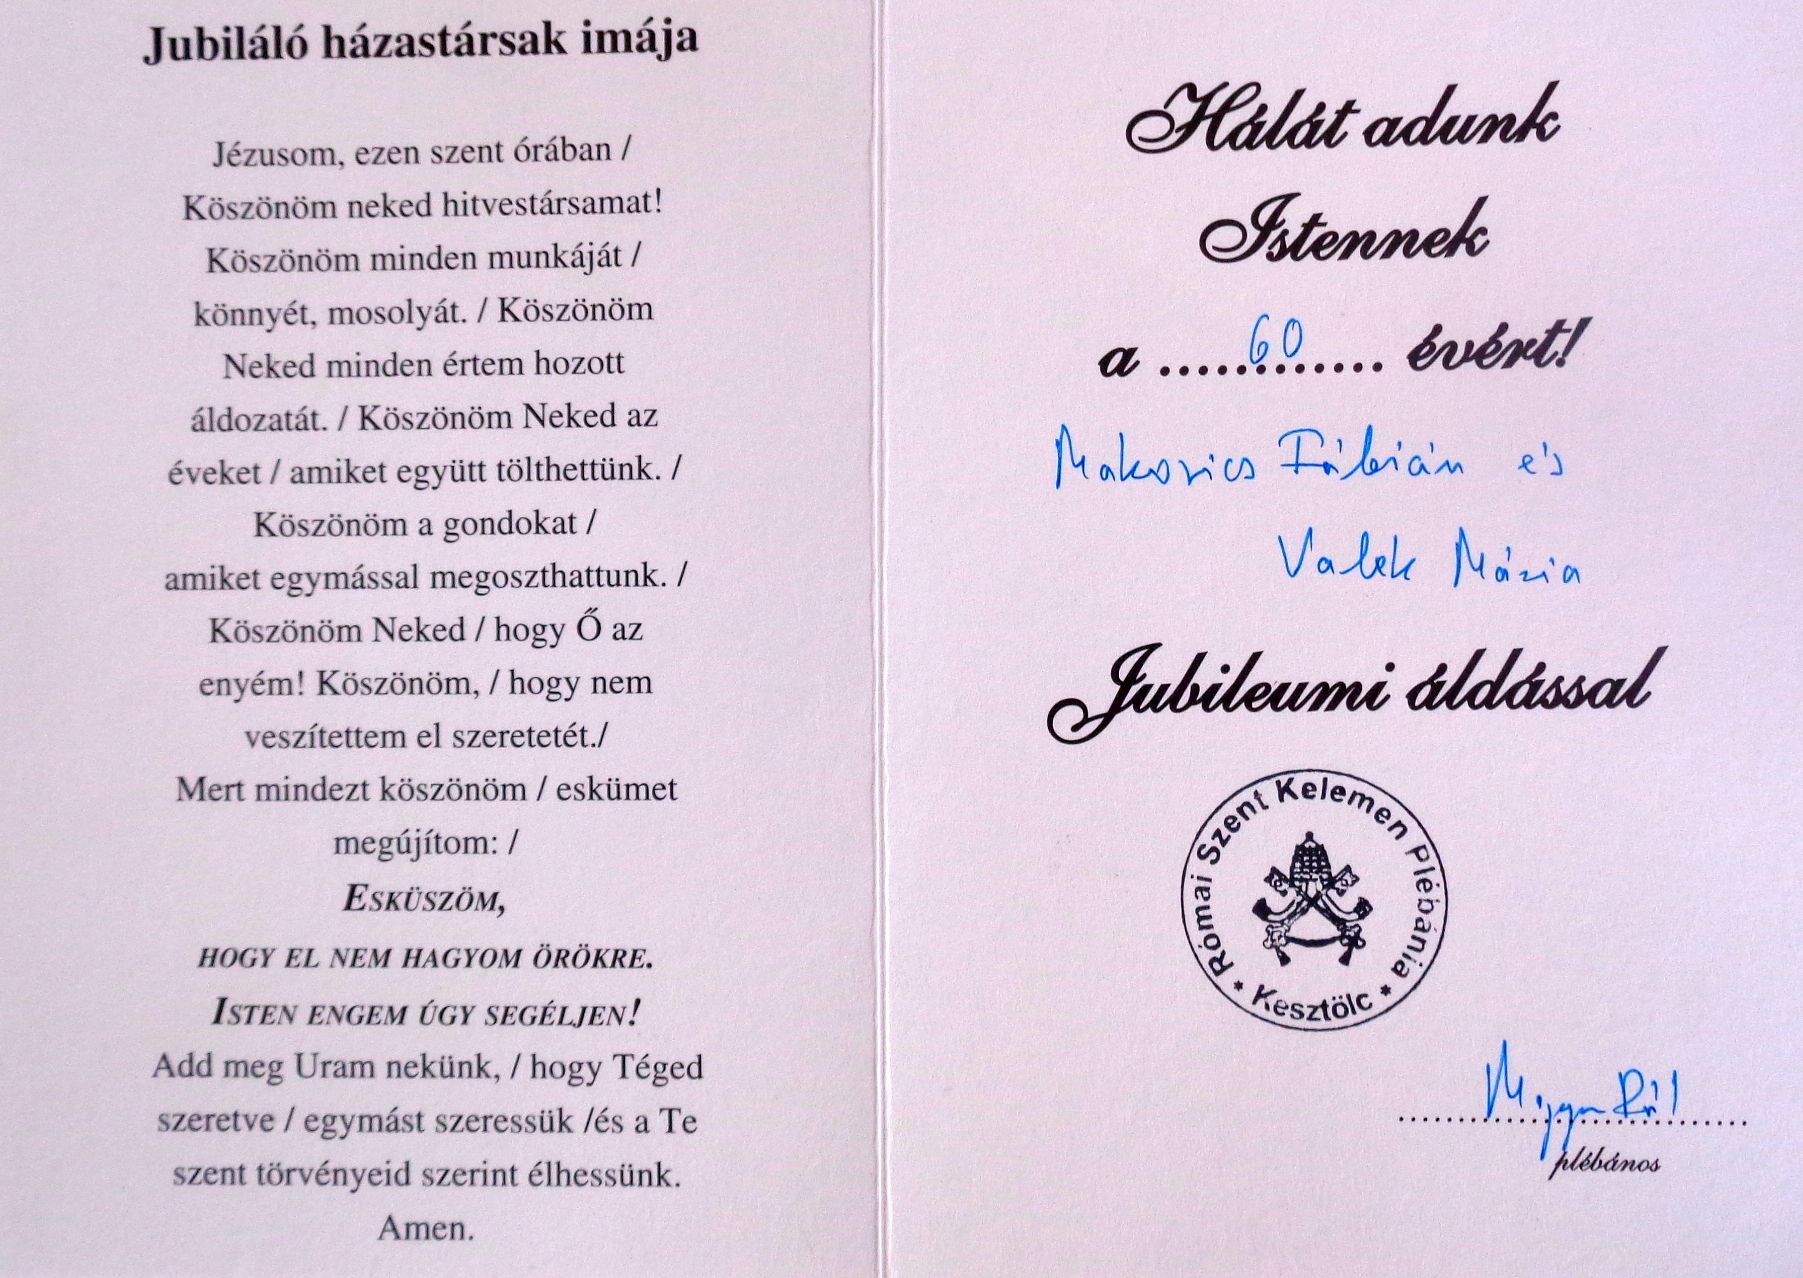 Jubiláló házastársak imája
Jézusom, ezen szent órában /
Köszönöm neked hitvestársamat!
Köszönöm minden munkáját /
könnyét, mosolyát. / Köszönöm
Neked minden értem hozott
áldozatát. / Köszönöm Neked az
éveket / amiket együtt tölthettünk. /
Köszönöm a gondokat /
amiket egymással megoszthattunk. /
Köszönöm Neked / hogy Ő az
enyém! Köszönöm, / hogy nem
veszítettem el szeretetét./
Mert mindezt köszönöm / eskümet
megújítom: /
ESKÜSZÖM,
HOGY EL NEM HAGYOM ÖRÖKRE.
ISTEN ENGEM ÚGY SEGÉLJEN!
Add meg Uram nekünk, / hogy Téged
szeretve / egymást szeressük /és a Te
szent törvényeid szerint élhessünk.
Amen.
Hálát adunk
Istennek
a ......60...... évért!
Makovics Fábián és
Valek Mária
Jubileumi áldással
Római Szent Kelemen Plébánia
* Kesztölc *
plébános